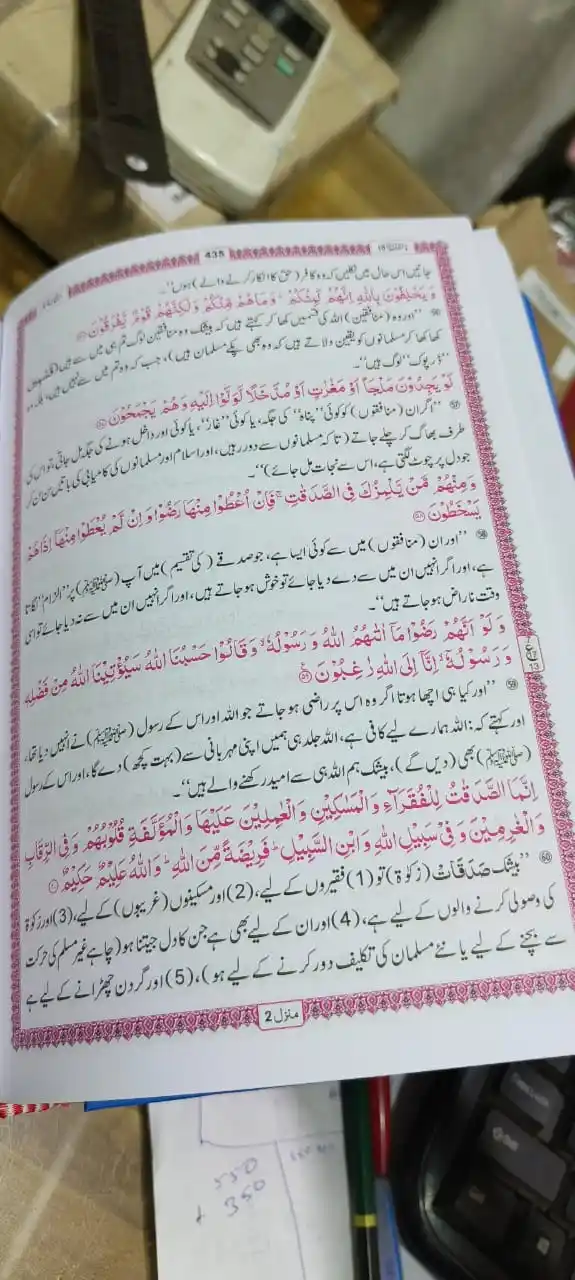 435
جائیں اس حال میں نکلیں کہ وہ کافر (حق کا انکار کرنے والے) ہوں"۔
وَ يَحْلِفُوْنَ بِاللّٰهِ اِنَّهُمْ لَمِنْكُمْ ؕ وَ مَا هُمْ مِّنْكُمْ وَ لٰكِنَّهُمْ قَوْمٌ يَّفْرَقُوْنَ ۝۵۶
56 "اور وہ (منافقین) اللہ کی قسمیں کھا کر کہتے ہیں کہ بیشک وہ منافقین لوگ تم ہی میں سے ہیں (قسمیں
کھا کھا کر مسلمانوں کو یقین دلاتے ہیں کہ وہ بھی پکے مسلمان ہیں)، جب کہ وہ تم میں سے نہیں ہیں، بلکہ وہ
"ڈرپوک" لوگ ہیں"۔
لَوْ يَجِدُوْنَ مَلْجَاً اَوْ مَغٰرٰتٍ اَوْ مُدَّخَلًا لَّوَلَّوْا اِلَيْهِ وَ هُمْ يَجْمَحُوْنَ ۝۵۷
57 "اگر ان (منافقوں) کو کوئی "پناہ" کی جگہ، یا کوئی "غار"، یا کوئی اور داخل ہونے کی جگہ مل جاتی، تو اس کی
طرف بھاگ کر چلے جاتے (تاکہ مسلمانوں سے دور رہیں، اور اسلام اور مسلمانوں کی کامیابی کی باتیں سن سن کر
جو دل پر چوٹ لگتی ہے، اس سے نجات مل جائے)"۔
وَ مِنْهُمْ مَّنْ يَّلْمِزُكَ فِي الصَّدَقٰتِ ۚ فَاِنْ اُعْطُوْا مِنْهَا رَضُوْا وَ اِنْ لَّمْ يُعْطَوْا مِنْهَاۤ اِذَا هُمْ
يَسْخَطُوْنَ ۝۵۸
58 "اور ان (منافقوں) میں سے کوئی ایسا ہے، جو صدقے (کی تقسیم) میں آپ (ﷺ) پر "الزام" لگاتا
ہے، اور اگر انہیں ان میں سے دے دیا جائے تو خوش ہو جاتے ہیں، اور اگر انہیں ان میں سے نہ دیا جائے تو اسی
وقت ناراض ہو جاتے ہیں"۔
وَ لَوْ اَنَّهُمْ رَضُوْا مَاۤ اٰتٰىهُمُ اللّٰهُ وَ رَسُوْلُهٗ ۙ وَ قَالُوْا حَسْبُنَا اللّٰهُ سَيُؤْتِيْنَا اللّٰهُ مِنْ فَضْلِهٖ
وَ رَسُوْلُهٗۤ ۙ اِنَّاۤ اِلَى اللّٰهِ رٰغِبُوْنَ ۝۵۹
ع
13
59 "اور کیا ہی اچھا ہوتا اگر وہ اس پر راضی ہو جاتے جو اللہ اور اس کے رسول (ﷺ) نے انہیں دیا تھا،
اور کہتے کہ: اللہ ہمارے لیے کافی ہے، اللہ جلد ہی ہمیں اپنی مہربانی سے (بہت کچھ) دے گا، اور اس کے رسول
(ﷺ) بھی (دیں گے)، بیشک ہم اللہ ہی سے امید رکھنے والے ہیں"۔
اِنَّمَا الصَّدَقٰتُ لِلْفُقَرَآءِ وَ الْمَسٰكِيْنِ وَ الْعٰمِلِيْنَ عَلَيْهَا وَ الْمُؤَلَّفَةِ قُلُوْبُهُمْ وَ فِي الرِّقَابِ
وَ الْغٰرِمِيْنَ وَ فِيْ سَبِيْلِ اللّٰهِ وَ ابْنِ السَّبِيْلِ ؕ فَرِيْضَةً مِّنَ اللّٰهِ ؕ وَ اللّٰهُ عَلِيْمٌ حَكِيْمٌ ۝۶۰
60 "بیشک صَدَقَاتْ (زکوٰۃ) تو (1) فقیروں کے لیے، (2) اور مسکینوں (غریبوں) کے لیے، (3) اور زکوٰۃ
کی وصولی کرنے والوں کے لیے ہے، (4) اور ان کے لیے بھی ہے جن کا دل جیتنا ہو (چاہے غیر مسلم کی حرکت
سے بچنے کے لیے یا نئے مسلمان کی تکلیف دور کرنے کے لیے ہو)، (5) اور گردن چھڑانے کے لیے ہے
منزل 2
550
+ 350